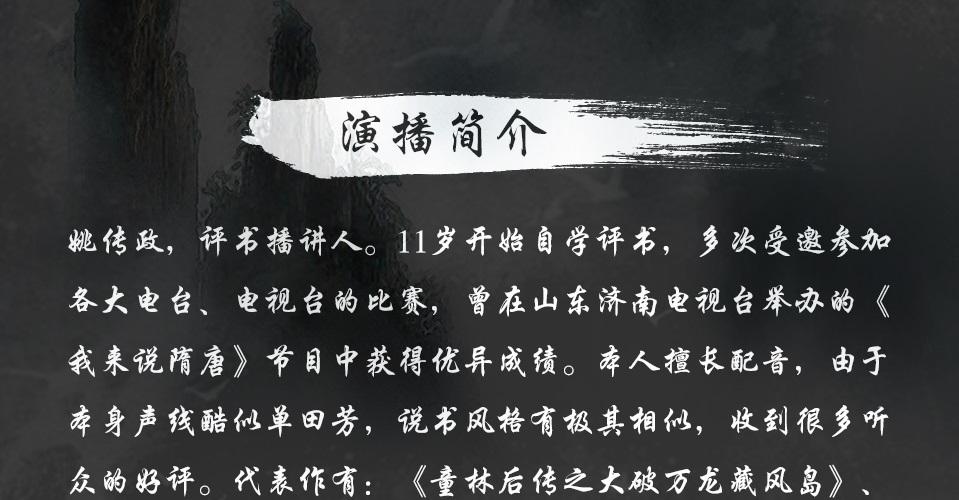 演播简介
姚传政，评书播讲人。11岁开始自学评书，多次受邀参加
各大电台、电视台的比赛，曾在山东济南电视台举办的《
我来说隋唐》节目中获得优异成绩。本人擅长配音，由于
本身声线酷似单田芳，说书风格有极其相似，收到很多听
众的好评。代表作有：《童林后传之大破万龙藏风岛》、